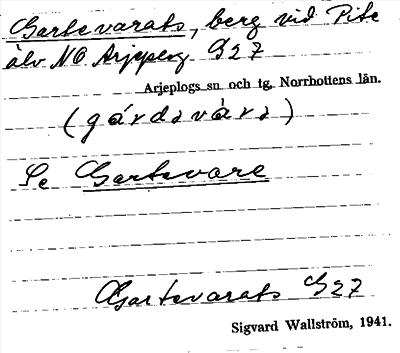 Gartevarats, berg vid Pite
älv NO Arjeplog G27
Arjeplogs sn och tg, Norrbottens län.
(gárdavàra)
Se Gartevare
Gartevarats G27
Sigvard Wallström, 1941.